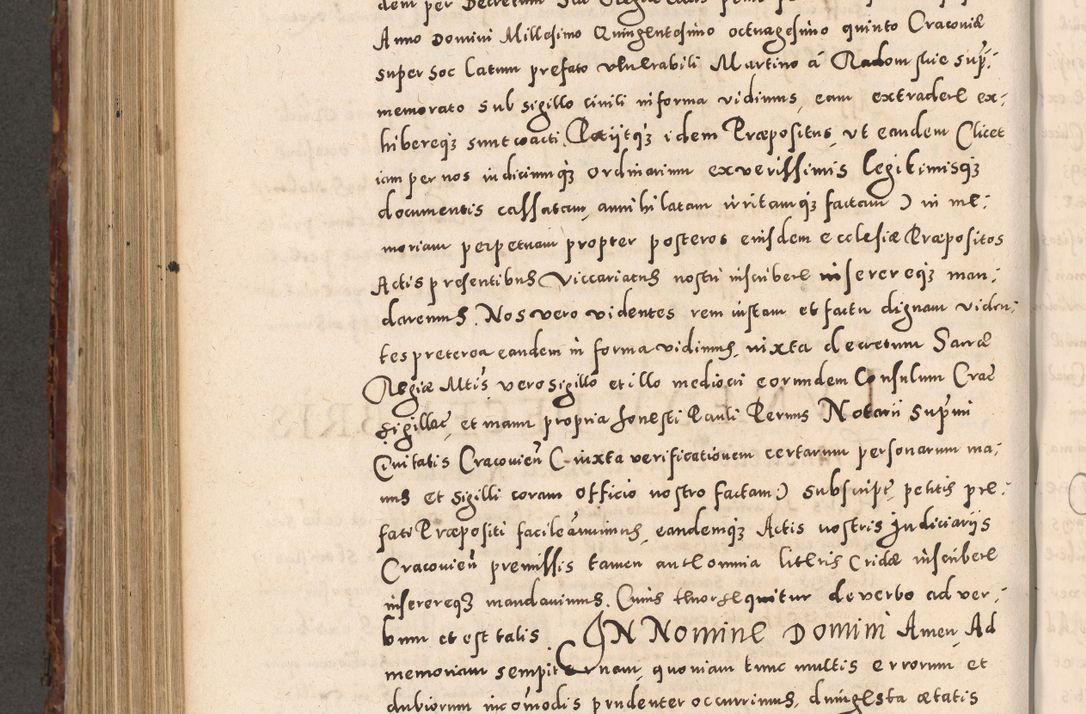 dem per Decretum
Anno Domini Millesimo Quingentesimo octuagesimo quinto Cracoviæ
super soc latum prefato venerabili Martino á Radomskie sup:
memorato sub sigillo civili in forma vidimus, eam extradere ex:
hibereqз sunt coacti. Petijtqз idem Præpositus, ut eandem Clicet
iam per nos iudiciumqз ordinarium ex verissimis legitimisqз
documentis cassatam, annihilatam irritamqз factam ) in me:
moriam perpetuam propter posteros eiusdem ecclesiæ Præpositos
Actis presentibus Viccariatus nostri inscribere inserereqз man:
daremus. Nos vero videntes rem iustam et factu dignam viden:
tes preterea eandem in forma vidimus, iuxta decretum Sacræ
Regiæ Mtis vero sigillo et illo mediocri eorundem Consulum Crac
sigillač, et manu propria honesti Pauli Pernus Notarii supmi
Civitatis Cracovień C iuxta verificationem certarum personarum ma:
nus et sigilli coram officio nostro factam ) subscript, petitis pre:
fati Præpositi facile ánnuimus, eandemqз Actis nostris judiciariis
Cracovień premissis tamen ante omnia litteris Cridæ inscribere
inserereqз mandavimus. Cuius thenor sequitur de verbo ad ver:
bum et est talis. IN Nomine Domini Amen, Ad
memoriam sempiternam, quoniam tunc multis errorum et
dubiorum incómodis prudenter occurrimus, dum gesta ætatis